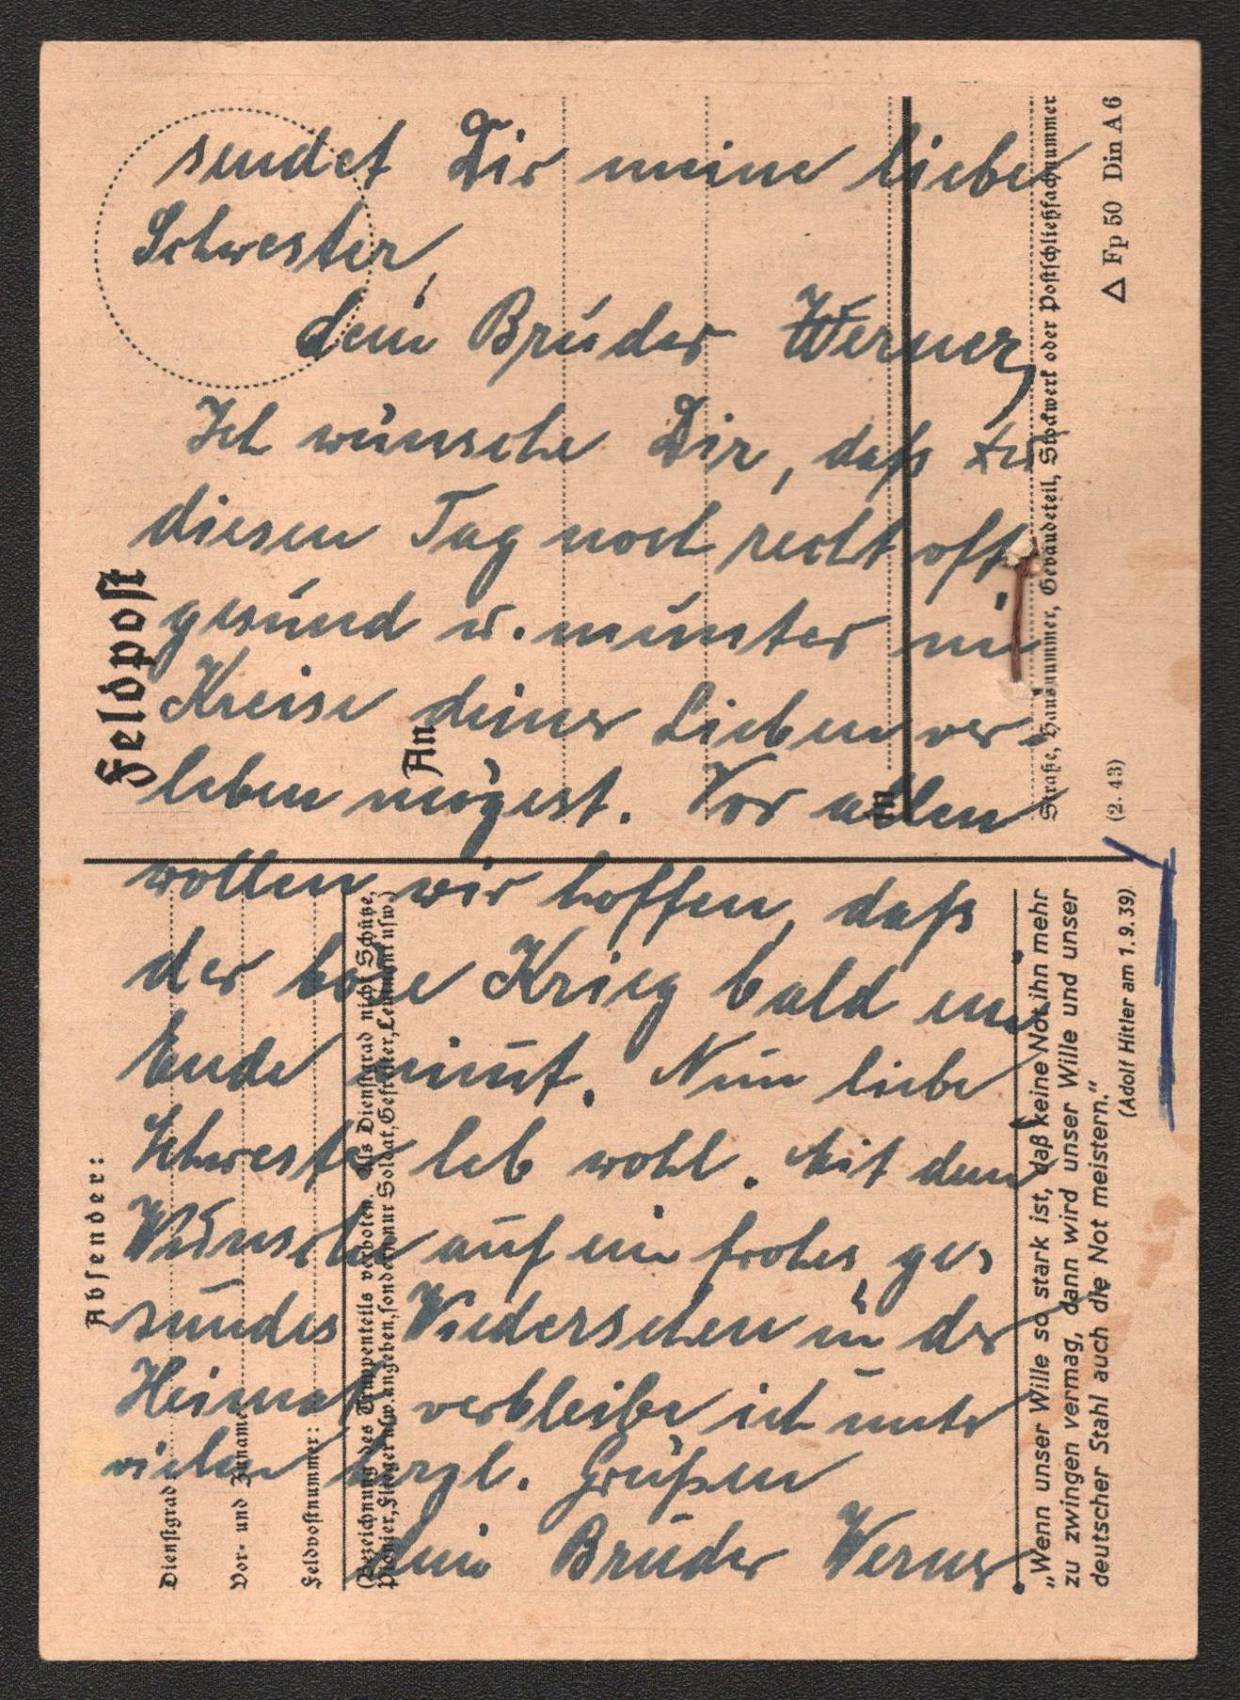 sendet Dir meine liebe
Schwester,
dein Bruder Werner,
Ich wünsche Dir, daß Du
diesen Tag noch recht oft,
gesund u. munter im
Kreise deiner Lieben ver-
leben mögest. Vor allen
wollen wir hoffen, daß
der böse Krieg bald ein
Ende nimt. Nun liebe
Schwester leb wohl. Mit dem
Wunsche auf ein frohes, ge-
sundes Wiedersehen in der
Heimat verbleibe ich unter
vielen herzl. Grüßen
dein Bruder Werner
Feldpost
An
in
Straße, Hausnummer, Gebäudeteil, Stockwerk oder Postschließfachnummer
(2. 43) △ Fp 50 Din A 6
Absender:
Dienstgrad
Vor- und Zuname
Feldpostnummer:
(Bezeichnung des Truppenteils verboten, als Dienstgrad nicht Schütze,
Pionier, Flieger usw. angeben, sondern nur Soldat, Gefreiter, Leutnant usw.)
„Wenn unser Wille so stark ist, daß keine Not ihn mehr
zu zwingen vermag, dann wird unser Wille und unser
deutscher Stahl auch die Not meistern.“
(Adolf Hitler am 1. 9. 39)